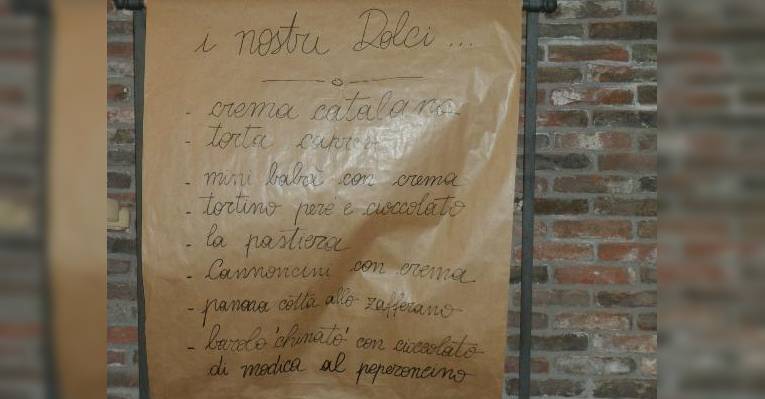 i nostri Dolci ...
- crema catalana
- torta caprese
- mini babà con crema
- tortino pere e cioccolato
- la pastiera
- Cannoncini con crema
- panna cotta allo zafferano
- barolo 'chinato' con cioccolato
di modica al peperoncino